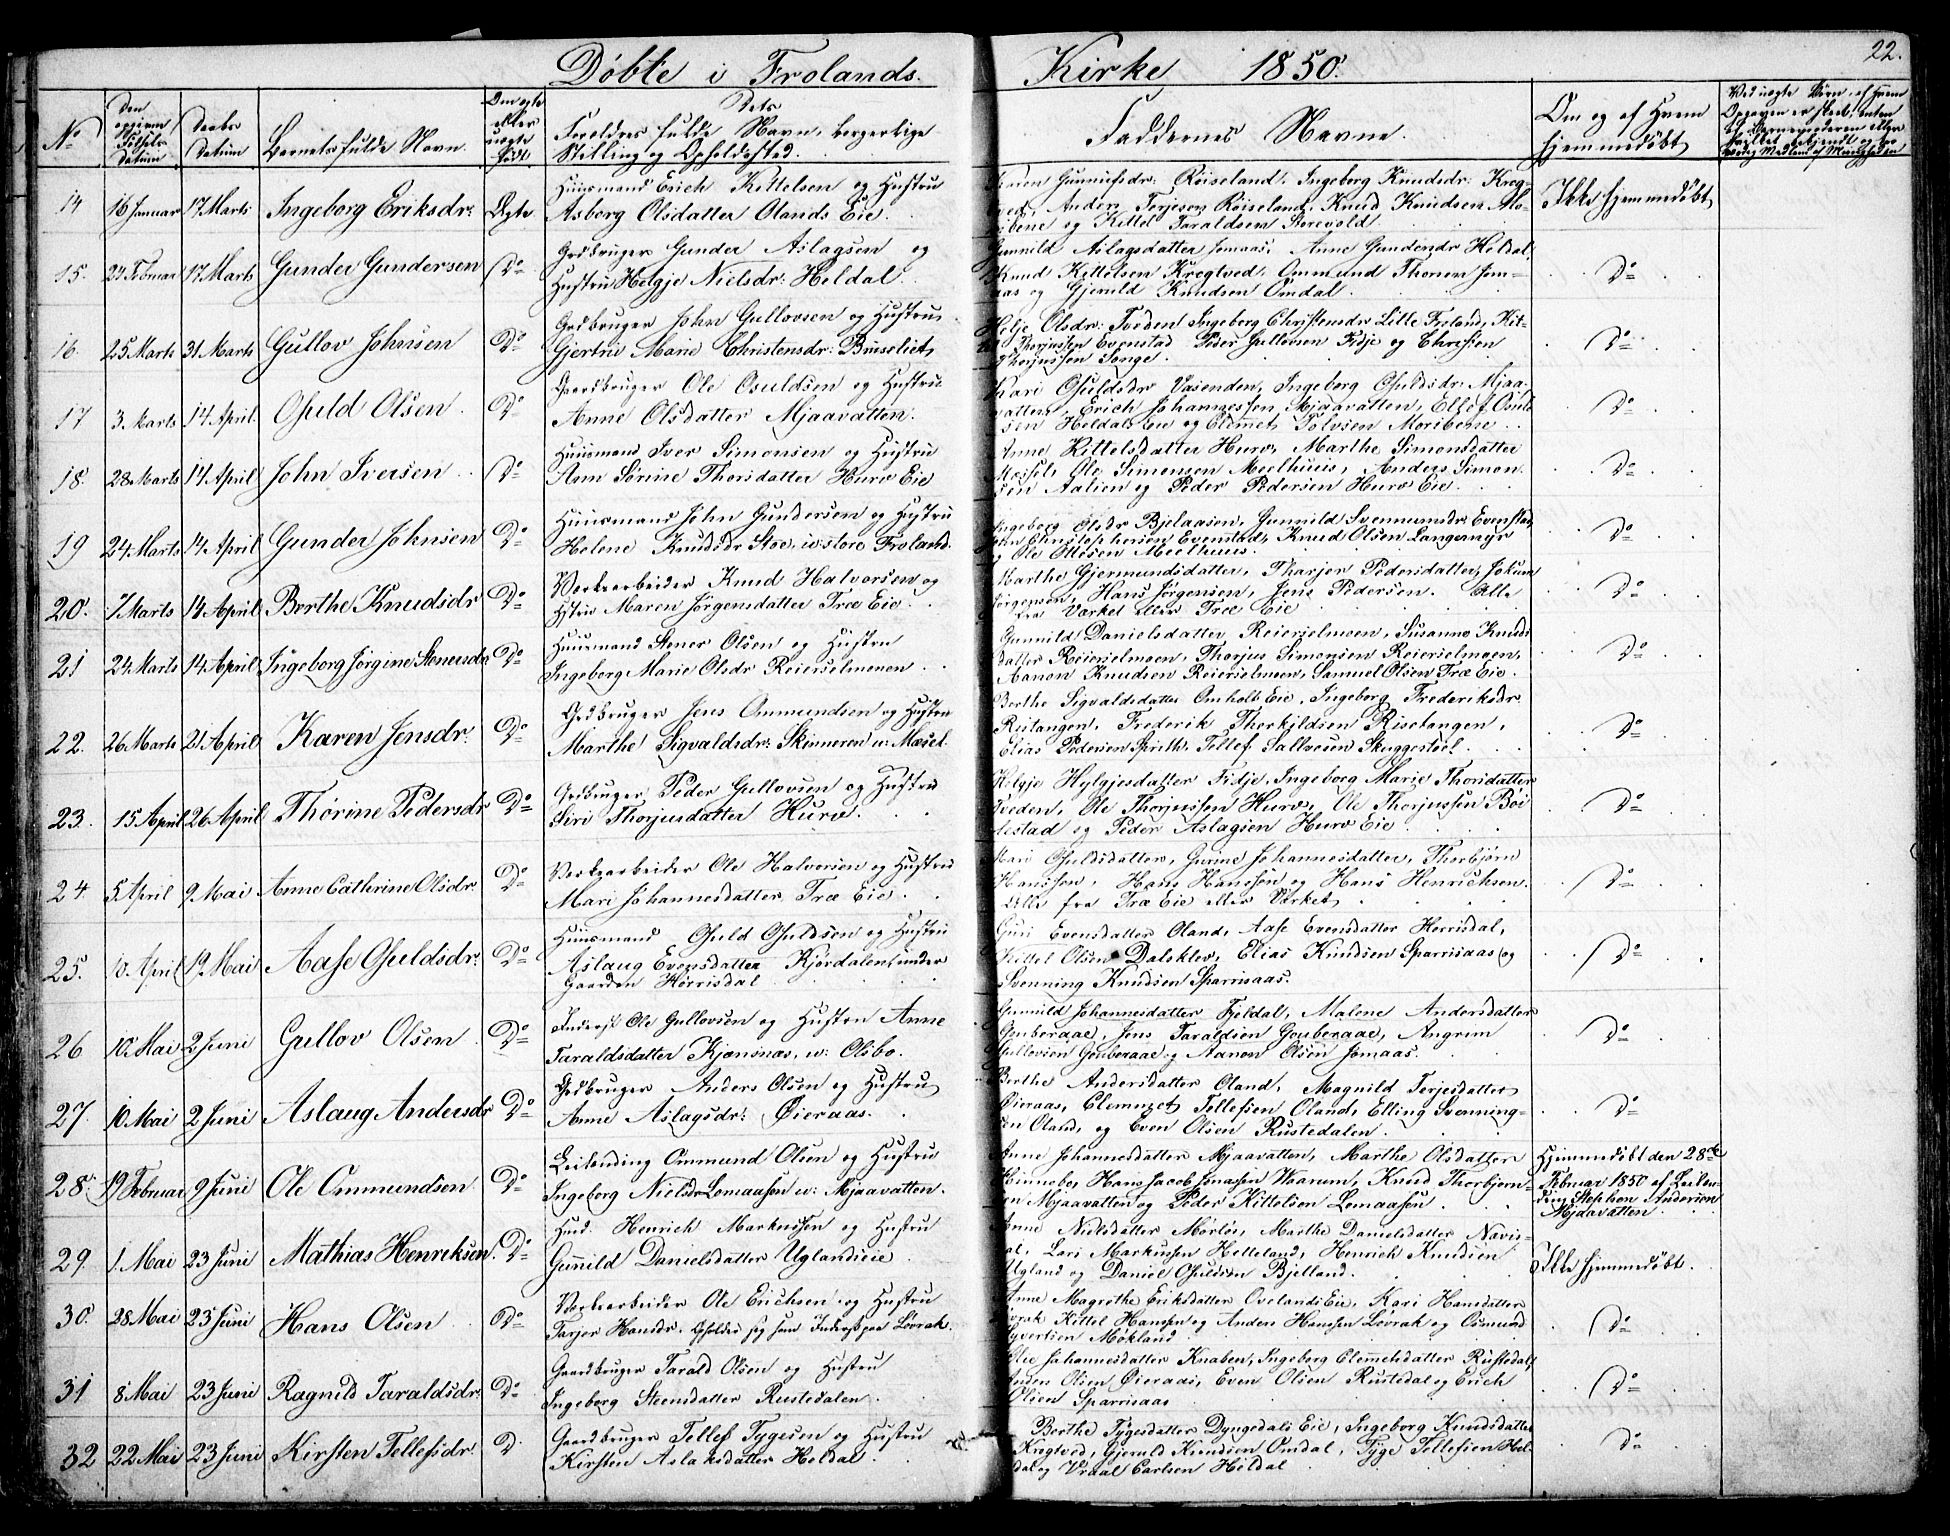 Døbte i Frolands Kirke 1850.
22.
No
Den opgivne Fødsels datum
Daabs datum
Barnets fulde Navn.
Om egte eller uegte født
Dets Forældres fulde Navn, borgerlige Stilling og Opholdssted.
Faddernes Navne.
Om og af Hvem hjemmedøbt
14 16 Januar 17 Marts Ingeborg Eriksdr: Ægte
Huusmand Erich Kittelsen og Hustru
Asborg Olsdatter Olands Eie.
Gunnufsdr: Røiseland, Ingeborg Knudsdr: Kreg-
Anders Terjesen Røiseland, Knud Knudsen
og Kittel Taraldsen Storevold
Ikke hjemmedøbt
15. 27 Februar 17 Marts Gunder Gundersen Do
Grdbruger Gunder Aslagsen og
Hustru Helgje Nielsdr: Heldal.
Gunnild Aslagsdatter Jomaas, Anne Gundersdr Heldal,
Knud Kittelsen Kregtved, Ommund Thorsen Jom-
aas og Gjeruld Knudsen Omdal.
Do
16. 25 Marts 31 Marts Gullov Johnsen Do
Grdbruger John Gullovsen og Hustru
Gjertru Marie Christensdr: Buseliet,
Helje Olsdr: Tveden, Ingeborg Christensdr Lille Froland, Kit-
Thorjussen Evenstad Peder Gullovsen Fidje og Christen
Thorjussen Songe.
Do
17 3. Marts 14 April. Osuld Olsen Do
Gaardbruger Ole Osuldsen og Hustru
Anne Olsdatter Mjaavatten.
Kari Osuldsdr Vasenden, Ingeborg Osuldsdr: Mjaa-
vatten, Erich Johannessen Mjaavatten, Ellef Osuld-
sen Heldals Eie og Clemet Tolvsen Moribene.
Do
18. 28 Marts 14 April John Iversen Do
Huusmand Iver Simonsen og Hustru
Ann Sørine Thorsdatter Hurv Eie
Anne Kittelsdatter Hurv, Marthe Simonsdatter
Messel, Ole Simonsen Meelhuus, Anders Simon-
sen Aalien og Peder Pedersen Hurv Eie.
Do
19 24 Marts 14 April Gunder Johnsen Do
Huusmand John Gundersen og Hustru
Helene Knudsdr Stoe, u: store Froland.
Ingeborg Olsdr Bjelaasen, Gunnild Svennumsdr: Evenstad,
John Christophersen Evenstad, Knud Olsen Langemyr
og Ole Ottesen Meelhuus.
Do
20. 7 Marts 14 April Berthe Knudsdr Do
Verksarbeider Knud Halvorsen og
Hstru Maren Jørgensdatter Træ Eie
Marthe Gjermundsdatter, Tharjer Pedersdatter, Jokum
Jørgensen, Hans Jørgensen, Jens Pedersen. Alle
fra Værket eller Træ Eie
Do
21 24 Marts 14 April Ingeborg Jørgine Stenersdr Do
Huusmand Stener Olsen og Hustru
Ingeborg Marie Olsdr Reierselmoen
Gunnild Danielsdatter Reierselmoen, Susanne Knuds
datter Reierselmoen, Thorjus Simonsen Reierselmoen,
Aanon Knudsen Reierselmoen, Samuel Olsen Træ Eie.
Do
22. 26 Marts 21 April Karen Jensdr: Do
Grdbruger Jens Ommundsen og Hustru
Marthe Sigvaldsdr: Skinneren u: Mæsel
Berthe Sigvaldsdatter Omholt Eie, Ingeborg Frederiksdr.
Ristangen, Frederik Thorkildsen Risetangen,
Elias Pedersen Sprith, Tellef Sallvesen Skuggestøel.
Do
23. 15 April 26 April Thorine Pedersdr Do
Grdbruger Peder Gullovsen og Hustru
Siri Thorjusdatter Hurv.
Helgje Hylgjesdatter Fidje, Ingeborg Marie Thorsdatter
Tveden, Ole Thorjussen Hurv, Ole Thorjussen Böi
lestad og Peder Aslagsen Hurv Eie.
Do
24. 5 April 9 Mai Anne Cathrine Olsdr Do
Verksarbeider Ole Halvorsen og Hustru
Mari Johannesdatter Træ Eie.
Mari Osuldsdatter, Gurine Johannesdatter, Thorbjørn
Hanssøn, Hans Hanssøn og Hans Henrichsen.
Alle fra Træ Eie eller Værket.
Do
25. 10 April 19 Mai Aase Osuldsdr. Do
Huusmand Osuld Osuldsen og Hustru
Aslaug Evensdatter Kjørdalen, under
Gaarden Hørrisdal
Guri Evensdatter Oland, Aase Evensdatter Herrisdal,
Kittel Olsen Dalsklev, Elias Knudsen Sparrisaas og
Svenning Knudsen Sparrisaas.
Do
26 10. Mai 2 Juni Gullov Olsen Do
Inderst Ole Gullovsen og Hustru Anne
Taraldsdatter Kjønsnæs, u: Olsbo.
Gunnild Johannesdatter Fjeldal, Malene Andersdatter
Gouberaae, Jens Taraldsen Gouberaae, Angrim
Gullovsen Gouberaae og Aanon Olsen Jomaas.
Do
27. 10 Mai 2 Juni Aslaug Andersdr Do
Grdbruger Anders Olsen og Hustru
Anne Aslagsdr: Øieraas.
Berthe Andersdatter Oland, Magnild Terjesdatter
Øieraas, Clemuzet Tellefsen Oland, Elling Svenning-
sen Oland, og Even Olsen Rustedalen.
Do
28. 19 Februar 9 Juni Ole Ommundsen Do
Leilending Ommund Olsen og Hustru
Ingeborg Nielsdr Lomaasen u: Mjaavatten.
Anne Johannesdatter Mjaavatten, Marthe Olsdatter
Hinnebo, Hans Jacob Jonassen Waarum, Knud Thorbjørn-
sen Mjaavatten og Peder Kittelsen Lomaasen
Hjemmedøbt den 28de
Februar 1850 af Leilen-
ding Stephen Andersen
Mjaavatten
29 1. Mai 23 Juni Mathias Henriksen. Do
Husd. Henrich Markussen og Hustru
Gunnild Danielsdatter Uglandseie
Anne Nielsdatter Mørløs, Marthe Danielsdatter Navis-
dal, Lars Markussen Helleland, Henrich Knudsen
Ugland og Daniel Osuldsen Bjelland.
Ikke hjemmedøbt.
30. 28 Mai 23 Juni Hans Olsen Do
Verksarbeider Ole Erichsen og Hustru
Tarjer Hansdr. Opholder sig som Inderst paa Lovrak.
Anne Magrethe Eriksdatter Ovelands Eie, Kari Hansdatter
Lovrak Kittel Hansen og Anders Hanssen Lovrak og Osmund
Syvertsen Mökland
Do
31 8 Mai 23 Juni Ragnild Taraldsdr. Do
Gaardbruger Tarald Olsen og Hustru
Ingeborg Steensdatter Rustedalen
Johannesdatter Knaben, Ingeborg Clemetsdatter Rustedal,
Anders Olsen Øieraas, Even Olsen Rustedal og Erich
Olsen Sparrisaas
Do
32 22 Mai 23 Juni Kirsten Tellefsdr. D
Gaardbruger Tellef Tygesen og Hustru
Kirsten Aslaksdatter Heldal.
Berthe Tygesdatter Dyngedals Eie, Ingeborg Knudsdatter
Kregtved, Gjeruld Knudsen Omdal, Tyge Tellefsen Hel-
dal og Vraal Carlsen Heldal
Do